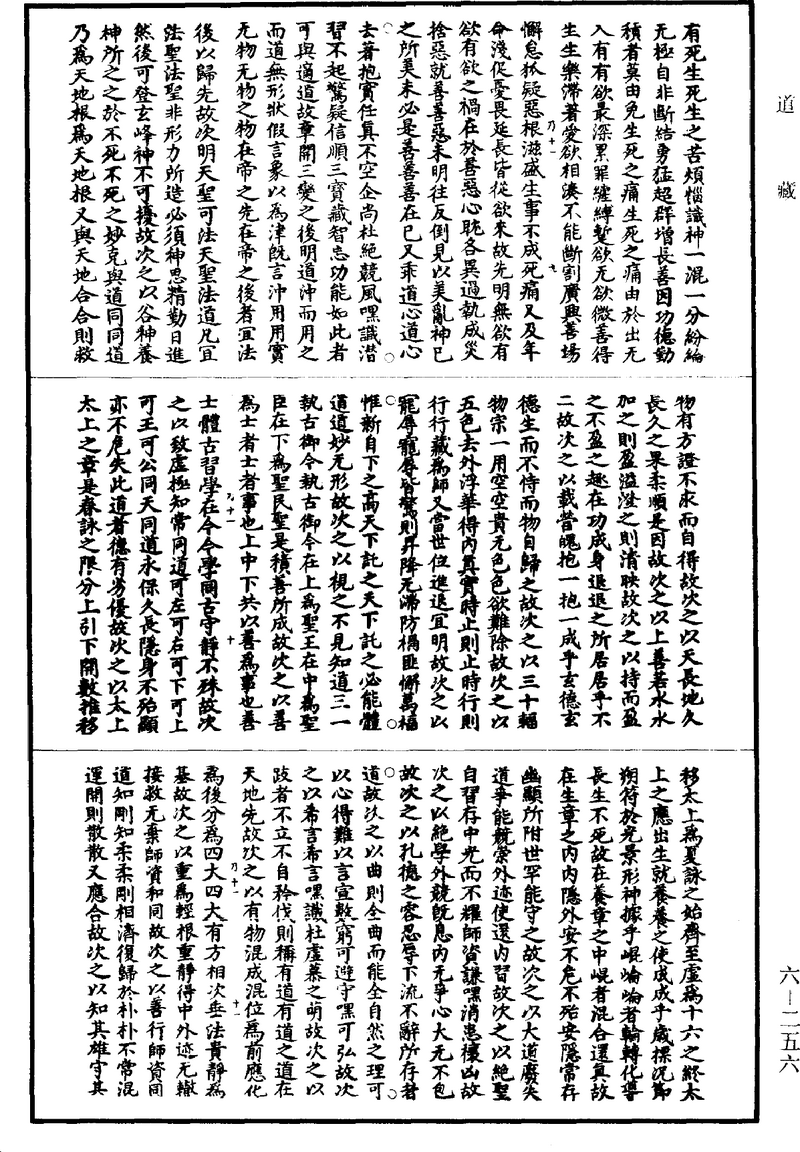 道藏
有死生死生之苦煩惱識神一混一分紛綸
无極自非斷結勇猛超群增長善因功德勤
積者莫由免生死之痛生死之痛由於出无
入有有欲最深累罪纏縛蹔欲无欲微善得
生生樂滯著愛欲相湊不能斷割廣興善場
懈怠狐疑惡根滋盛生事不成死痛又及年
命淺促憂畏延長皆從欲來故先明無欲有
欲有欲之禍在於善惡心眈各異過執成災
捨惡就善善惡未明往反倒見以美亂神已
之所美未必是善善善在已又乖道心道心
去著抱實任真不空企尚杜絕競風嘿識潜
習不起驚疑信順三寶藏智忘功能如此者
可與適道故章開三變之後明道沖而用之
而道無形狀假言象以為津既言沖用用實
无物无物之物在帝之先在帝之後者宜法
後以歸先故次明天聖可法天聖法道凡宜
法聖法聖非形力所造必須神思精勤日進
然後可登玄峰神不可擾故次之以谷神養
神所之之於不死不死之妙克與道同同道
乃為天地根為天地根又與天地合合則救
物有方證不求而自得故次之以天長地久
長久之果柔順是因故次之以上善若水水
加之則盈溢澄之則清映故次之以持而盈
之不盈之趣在功成身退退之所居居乎不
二故次之以載營魄抱一抱一成乎玄德玄
德生而不恃而物自歸之故次之以三十輻
物宗一用空空貴无色色欲難除故次之以
五色去外浮華得內真實時止則止時行則
行行藏為師又當世位進退宜明故次之以
寵辱寵辱皆驚則昇降无滯防禍匪懈萬福
惟新自下之高天下託之天下託之必能體
道道妙无形故次之以視之不見知道三一
執古御今執古御今在上為聖王在中為聖
臣在下為聖民聖是積善所成故次之以善
為士者士者事也上中下共以善為事也善
士體古習學在今今學同古守靜不殊故次
之以致虛極知常同道可左可右可下可上
可王可公同天同道永保久長隱身不殆顯
亦不危失此道者德有劣優故次之以太上
太上之章是春詠之限分上引下開數推移
移太上為夏詠之始齊至虛為十六之終太
上之應出生就養養之使成成乎歲探況節
朔符於光景形神據乎崐崘崘者輪轉化導
長生不死故在養章之中崐者混合還真故
在生章之內內隱外安不危不殆安隱常存
幽顯所附世罕能守之故次之以大道廢失
道爭能競崇外迹使還內習故次之以絕聖
自習存中光而不耀師資謙嘿消患穰凶故
次之以絕學外競既息內无爭心大无不包
故次之以孔德之容忍辱下流不辭所存者
道故次之以曲則全曲而能全自然之理可
以心得難以言宣數窮可避守嘿可弘故次
之以希言希言嘿識杜虛慕之萌故次之以
跂者不立不自矜伐則稱有道有道之道在
天地先故次之以有物混成混位為前應化
為後分為四大四大有方相次垂法貴靜為
基故次之以重為輕根重靜得中外迹无轍
接救无棄師資和同故次之以善行師資同
道知剛知柔柔剛相濟復歸於朴朴不常混
運開則散散又應合故次之以知其雄守其
六—二五六